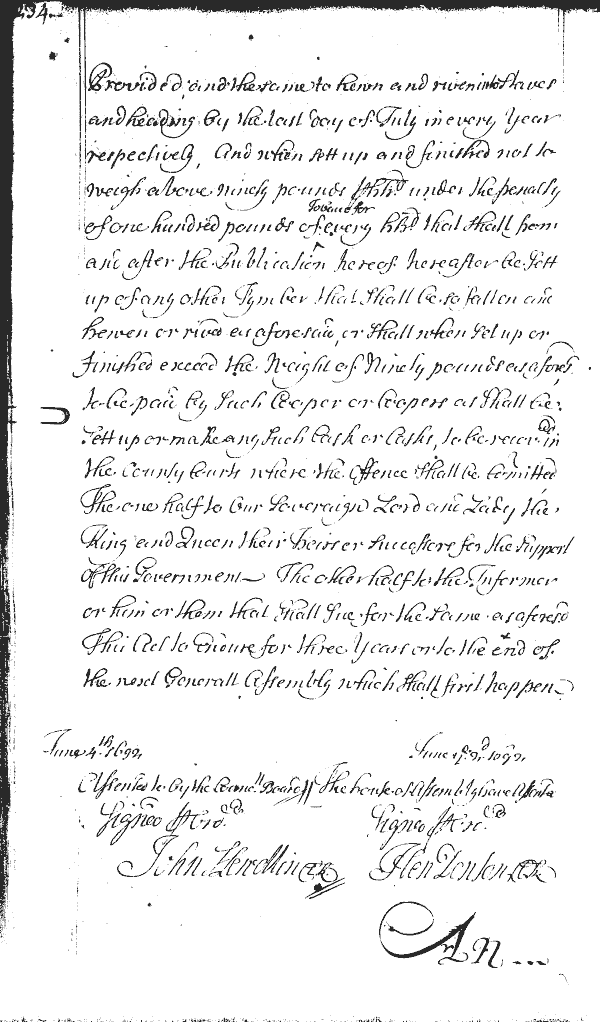 434
Provided, and the same to hewn and riven into Staves
and heading by the last day of July in every Year
respectively, And when sett up and finished not to
weigh above ninety pounds ꝑ hhd under the penalty
of one hundred pounds of Tobacco for every hhd that shall from
and after the Publication hereof hereafter be Sett
up of any other Tymber that shall be so fallen and
hewen or rived as aforesaid, or shall when Set up or
finished exceed the Weight of Ninety pounds as aforesd
to be paid by Such Cooper or Coopers as Shall be
Sett up or make any Such Cask or Casks, to be recovd in
the County Courts where the Offence Shall be Comitted
The one half to Our Soveraign Lord and Lady the
King and Queen their Heirs or Successors for the Support
of this Government The other half to the Informer
or him or them that shall Sue for the Same as aforesd
This Act to Endure for three Years or to the End of
the next Generall Assembly which shall first happen
June 4th 1692 June 2d 1692
Assented to by the Councll Board The house of Assembly have Assented
Signed ꝑ ordd Signed ꝑ ordd
John Llewellin Clk Hen Denton Clk
An